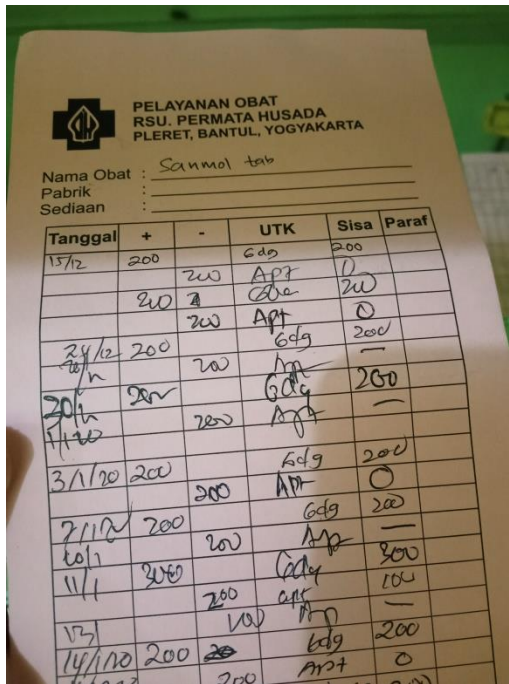 PELAYANAN OBAT
RSU. PERMATA HUSADA
PLERET, BANTUL, YOGYAKARTA
Nama Obat : Sanmol tab
Pabrik :
Sediaan :
Tanggal + - UTK Sisa Paraf
15/12 200 Gdg 200
200 Apt 0
200 200
200 Apt 0
24/12 200 Gdg 200
200 Apt —
200 Gdg 200
200 Apt —
3/1/20 200 Gdg 200
200 Apt 0
7/1/20 200 Gdg 200
10/1 200 Apt —
11/1 300 Gdg 300
200 apt 100
100 Ap —
14/1/20 200 Gdg 200
200 Apt 0